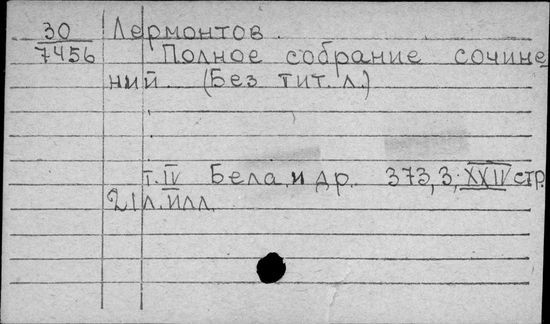 30 Лермонтов.
7456 Полное собрание сочине
ний (Без тит. л.)
т. IV Бела и др. 373, 3, XXII стр.
21 л. илл.